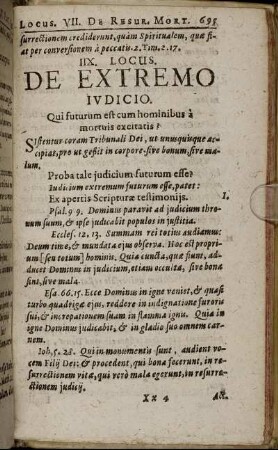 Locus. VII. De Resur. Mort. 695
surrectionem crediderunt, quàm Spiritualem, quæ fi-
at per conversionem à peccatis. 2. Tim. 2. 17.
IIX. LOCUS.
DE EXTREMO
IVDICIO.
Qui futurum est cum hominibus à
mortuis excitatis?
Sistentur coram Tribunali Dei, ut unusquisque ac-
cipiat, pro ut gessit in corpore sive bonum, sive ma-
lum.
Proba tale judicium futurum esse?
Iudicium extremum futurum esse, patet:
Ex apertis Scripturæ testimonijs. I.
Psal. 9 9. Dominus paravit ad judicium thro-
num suum, & ipse judicabit populos in justitia.
Eccles. 12. 13. Summam rei totius audiamus:
Deum time, & mundata ejus observa. Hoc est proprium
[seu totum] hominis. Quia cuncta, quæ fiunt, ad-
ducet Dominus in judicium, etiam occulta, sive bona
sint, sive mala.
Esa. 66. 15. Ecce Dominus in igne veniet, & quasi
turbo quadrigæ ejus, reddere in indignatione furorem
sui, & increpationem suam in flamma ignu. Quia in
igne Dominus judicabit, & in gladio suo omnem car-
nem.
Ioh. 5. 28. Qui in monumentis sunt, audient vocem
Filij Dei: & procedent, qui bona fecerunt, in re-
surrectionem vitæ, qui verò mala egerunt, in resurre-
ctionem judicij.
Xx 4 Act.